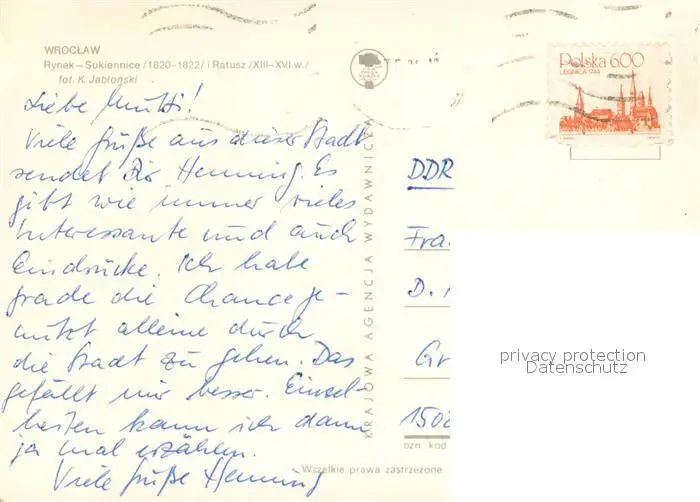 WROCŁAW
Rynek – Sukiennice /1820–1822/ i Ratusz /XIII–XVI w./
fot. K. Jabłoński
Liebe Mutti!
Viele Grüße aus dieser Stadt
sendet Dir Henning. Es
gibt wie immer vieles
Interessante und auch
Eindrücke. Ich habe
grade die Chance ge-
nutzt alleine durch
die Stadt zu gehen. Das
gefällt mir besser. Einzel-
heiten kann ich dann
ja mal erzählen.
Viele Grüße Henning
KRAJOWA AGENCJA WYDAWNICZA
Polska 6.00
LEGNICA 1744
DDR
Fra.
D.
Gr
150
ozn kod
Wszelkie prawa zastrzeżone
privacy protection
Datenschutz